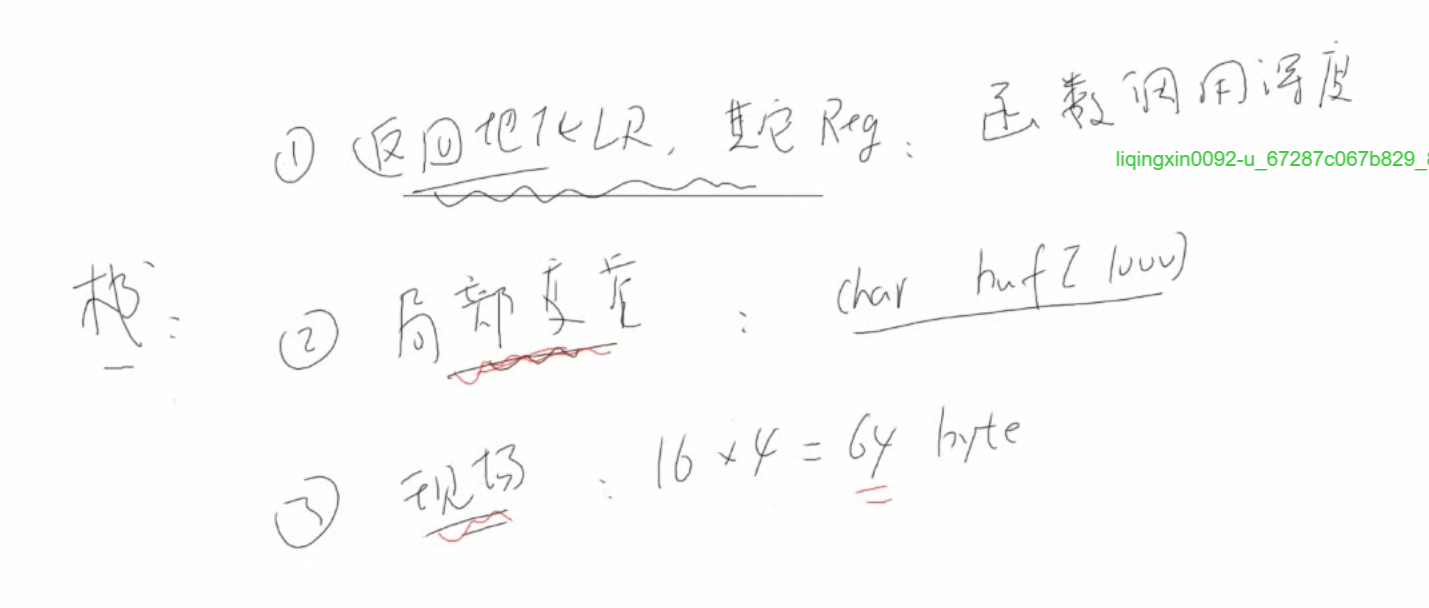 ① 返回地址LR, 其它Reg: 函数调用深度
liqingxin0092-u_67287c067b829_
栈: ② 局部变量 : char buf[1000]
③ 现场 : 16×4 = 64 byte